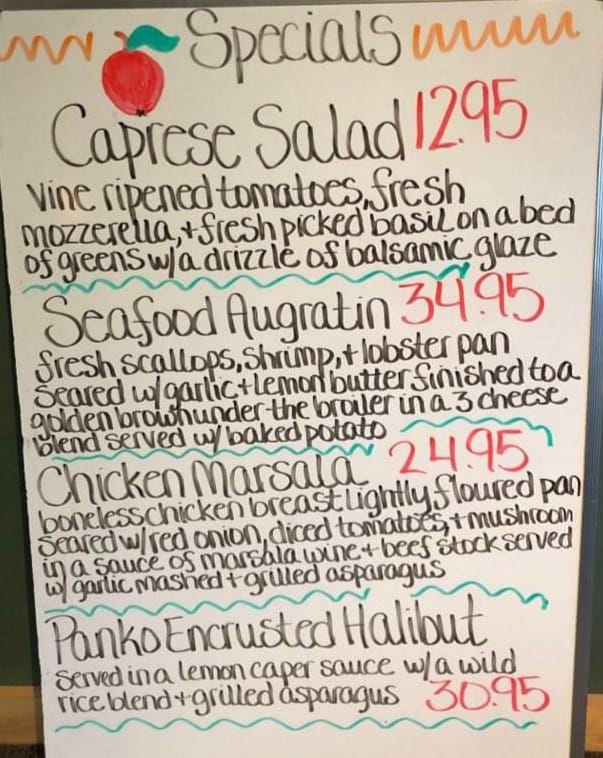 Specials
Caprese Salad 12.95
vine ripened tomatoes, fresh
mozzerella, + fresh picked basil on a bed
of greens w/a drizzle of balsamic glaze
Seafood Augratin 34.95
fresh scallops, shrimp, + lobster pan
seared w/garlic + lemon butter finished to a
golden brown under the broiler in a 3 cheese
blend served w/ baked potato
Chicken Marsala 24.95
boneless chicken breast lightly floured pan
seared w/red onion, diced tomatoes, + mushroom
in a sauce of marsala wine + beef stock served
w/ garlic mashed + grilled asparagus
Panko Encrusted Halibut
served in a lemon caper sauce w/a wild
rice blend + grilled asparagus 30.95